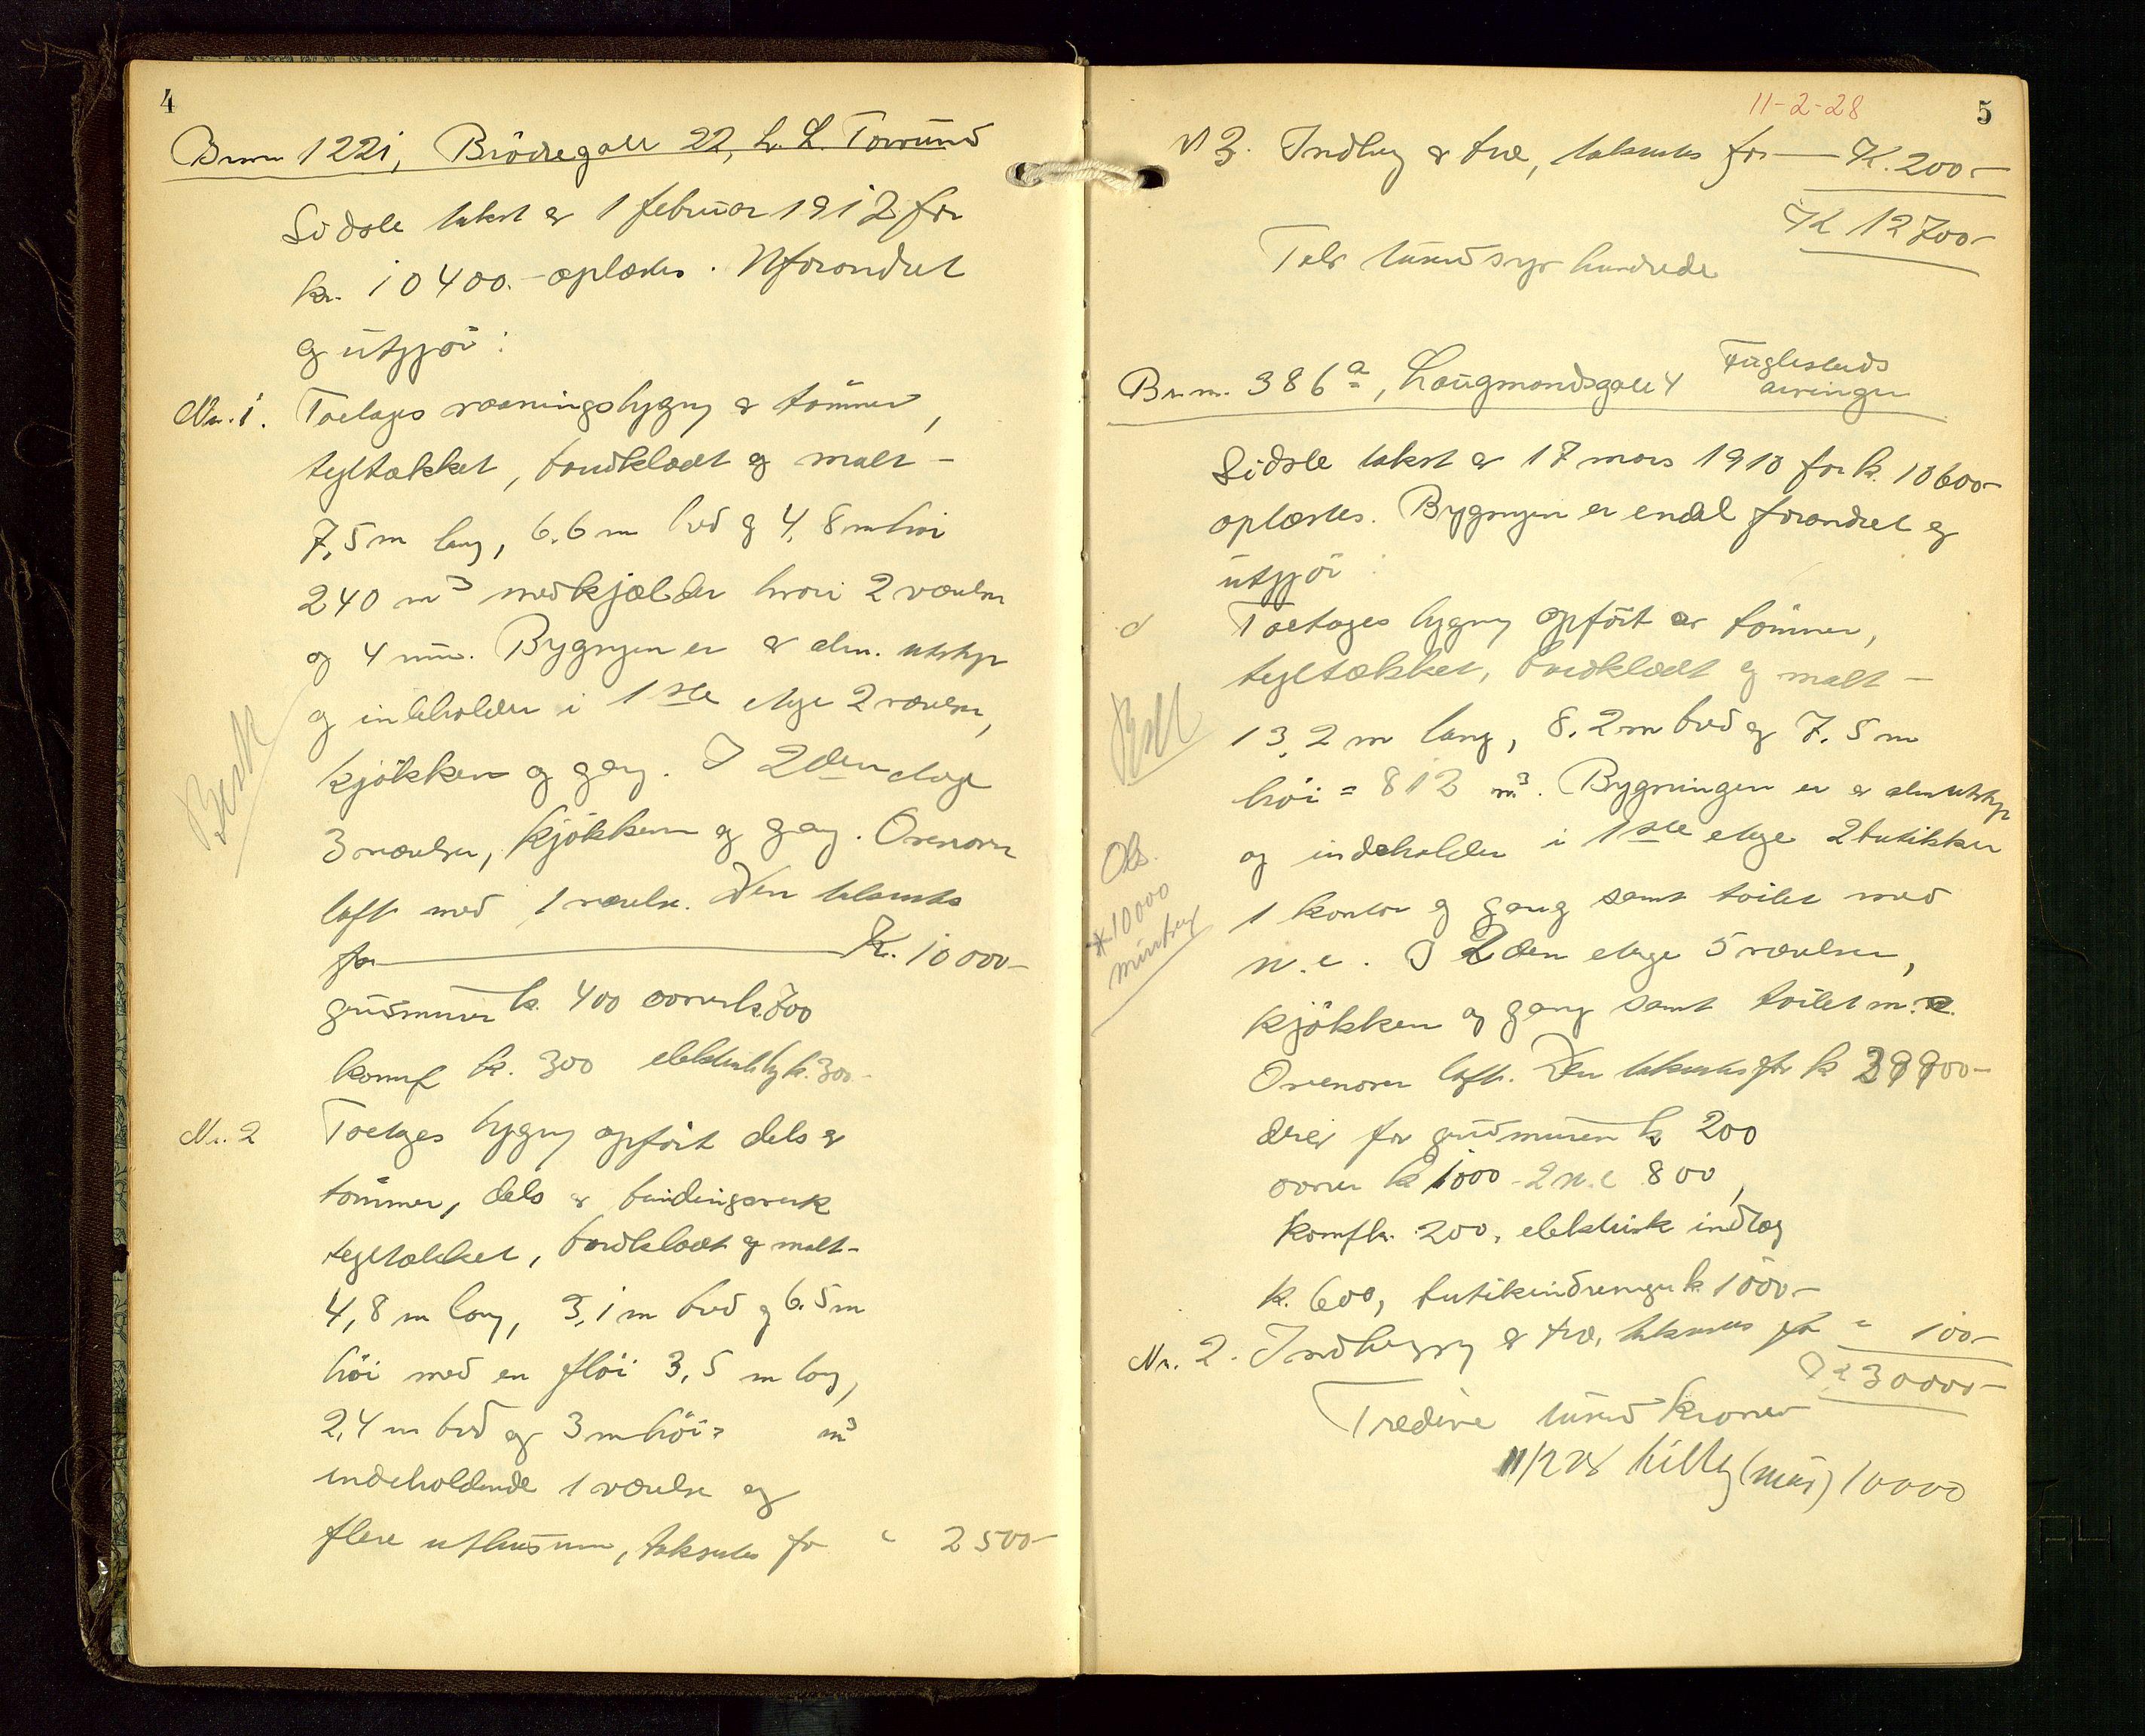 4
Brnr 1221, Brødregate 22, hr. L. Torsund
Sidste takst av 1 februar 1912 for
kr. 10400.- oplæstes. Uforandret
og utgjør:
Nr. 1. Toetages vaaningsbygn av tømmer,
tegltækket, bordklædt og malt -
7,5 m lang, 6.6 m bred og 4,8 m høi
240 m³ med kjælder hvori 2 værelser
og 4 rum. Bygngen er av alm. utstyr
og indeholder i 1ste etage 2 værelser,
kjøkken og gang. I 2den etage
3 værelser, kjøkken og gang. Ovenover
loft med 1 værelse. Den takseres
for Kr. 10000-
Besk
grundmuren k. 400 ovner k. 700
komf k. 300 elektrisk lys k. 300-
Nr. 2 Toetages bygn opført dels av
tømmer, dels av bindingsverk
tegltækket, bordklædt og malt-
4,8 m lang, 3,1 m bred og 6.5 m
høi med en fløi 3,5 m lang,
2,4 m bred og 3 m høi = m³
indeholdende 1 værelse og
flere uthusrum, takseres for " 2500-
11-2-28
5
N 3. Indheg av træ, takseres for K. 200-
K 12700-
Tolv tusind syv hundrede
Br.nr. 386 a, Laugmandsgate 4 Fuglestads
arvinger
Sidste takst av 17 mars 1910 for k. 10600-
oplæstes. Bygngen er endel forandret og
utgjør:
Toetages bygn opført av tømmer,
tegltækket, bordklædt og malt -
13,2 m lang, 8,2 m bred og 7.5 m
høi = 812 m³. Bygningen er av alm utstyr
og indeholder i 1ste etage 2 butikker
1 kontor og gang samt toilet med
w.c. I 2den etage 5 værelser,
kjøkken og gang samt toilet m. w.c.
Ovenover loft. Den takseres for k 29900-
Besk
Obs.
*10000
murbyg
derav for grundmuren k 200
ovner k 1000 - 2 w.c 800,
komf k. 200, elektrisk indlæg
k. 600, butikindredninger k. 1000-
Nr. 2. Indhegn av træ, takseres for " 100-
K 30000-
Tredive tusind kroner
11/2 28 tillæg (mur) 10000